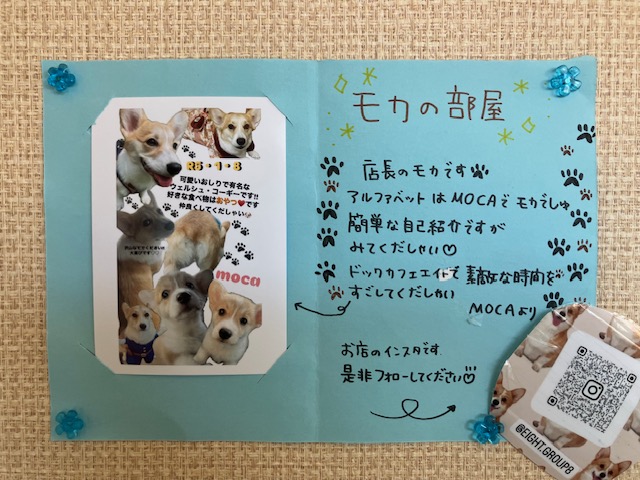 R5・1・8
可愛いおしりで有名な
ウェルシュ・コーギーです!!
好きな食べ物はおやつ❤です
仲良くしてくだしゃい
moca
モカの部屋
店長のモカです
アルファベットはMOCAでモカでしゅ
簡単な自己紹介ですが
みてくだしゃい♡
ドックカフェエイトで素敵な時間を
すごしてくだしゃい
MOCAより
お店のインスタです
是非フォローしてください
@EIGHT.GROUP8